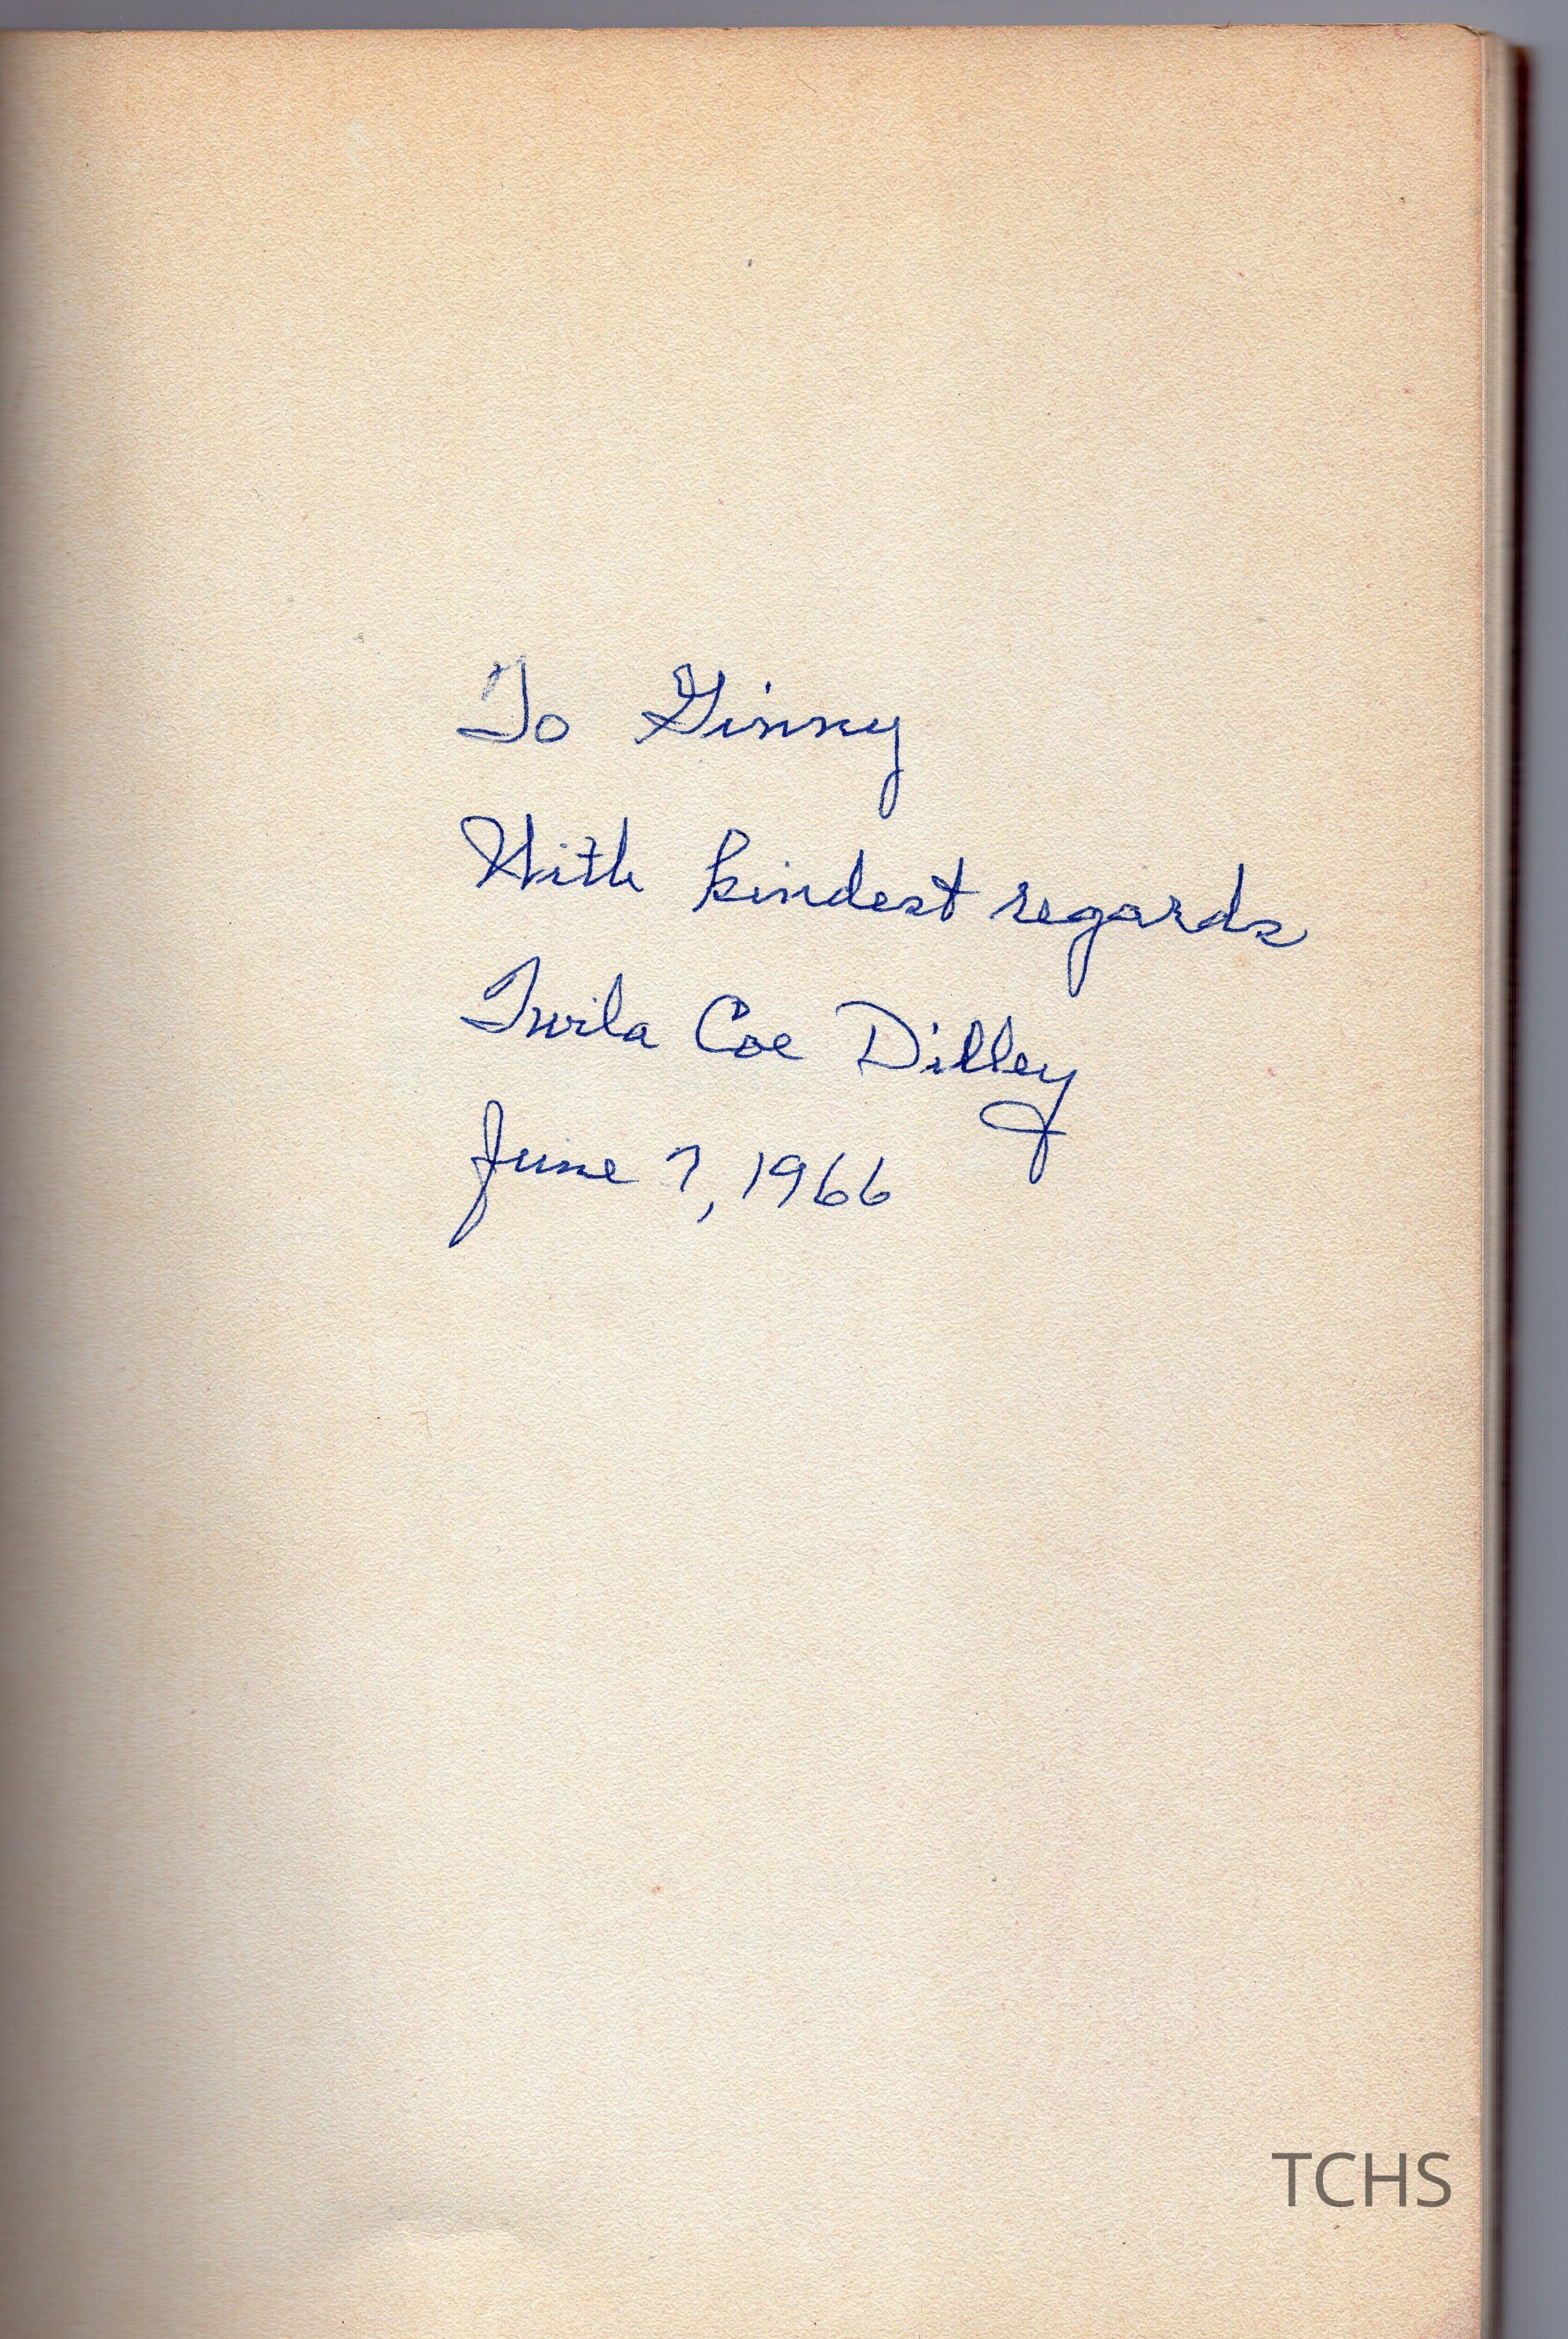 To Ginny
With kindest regards
Twila Coe Dilley
June 7, 1966
TCHS